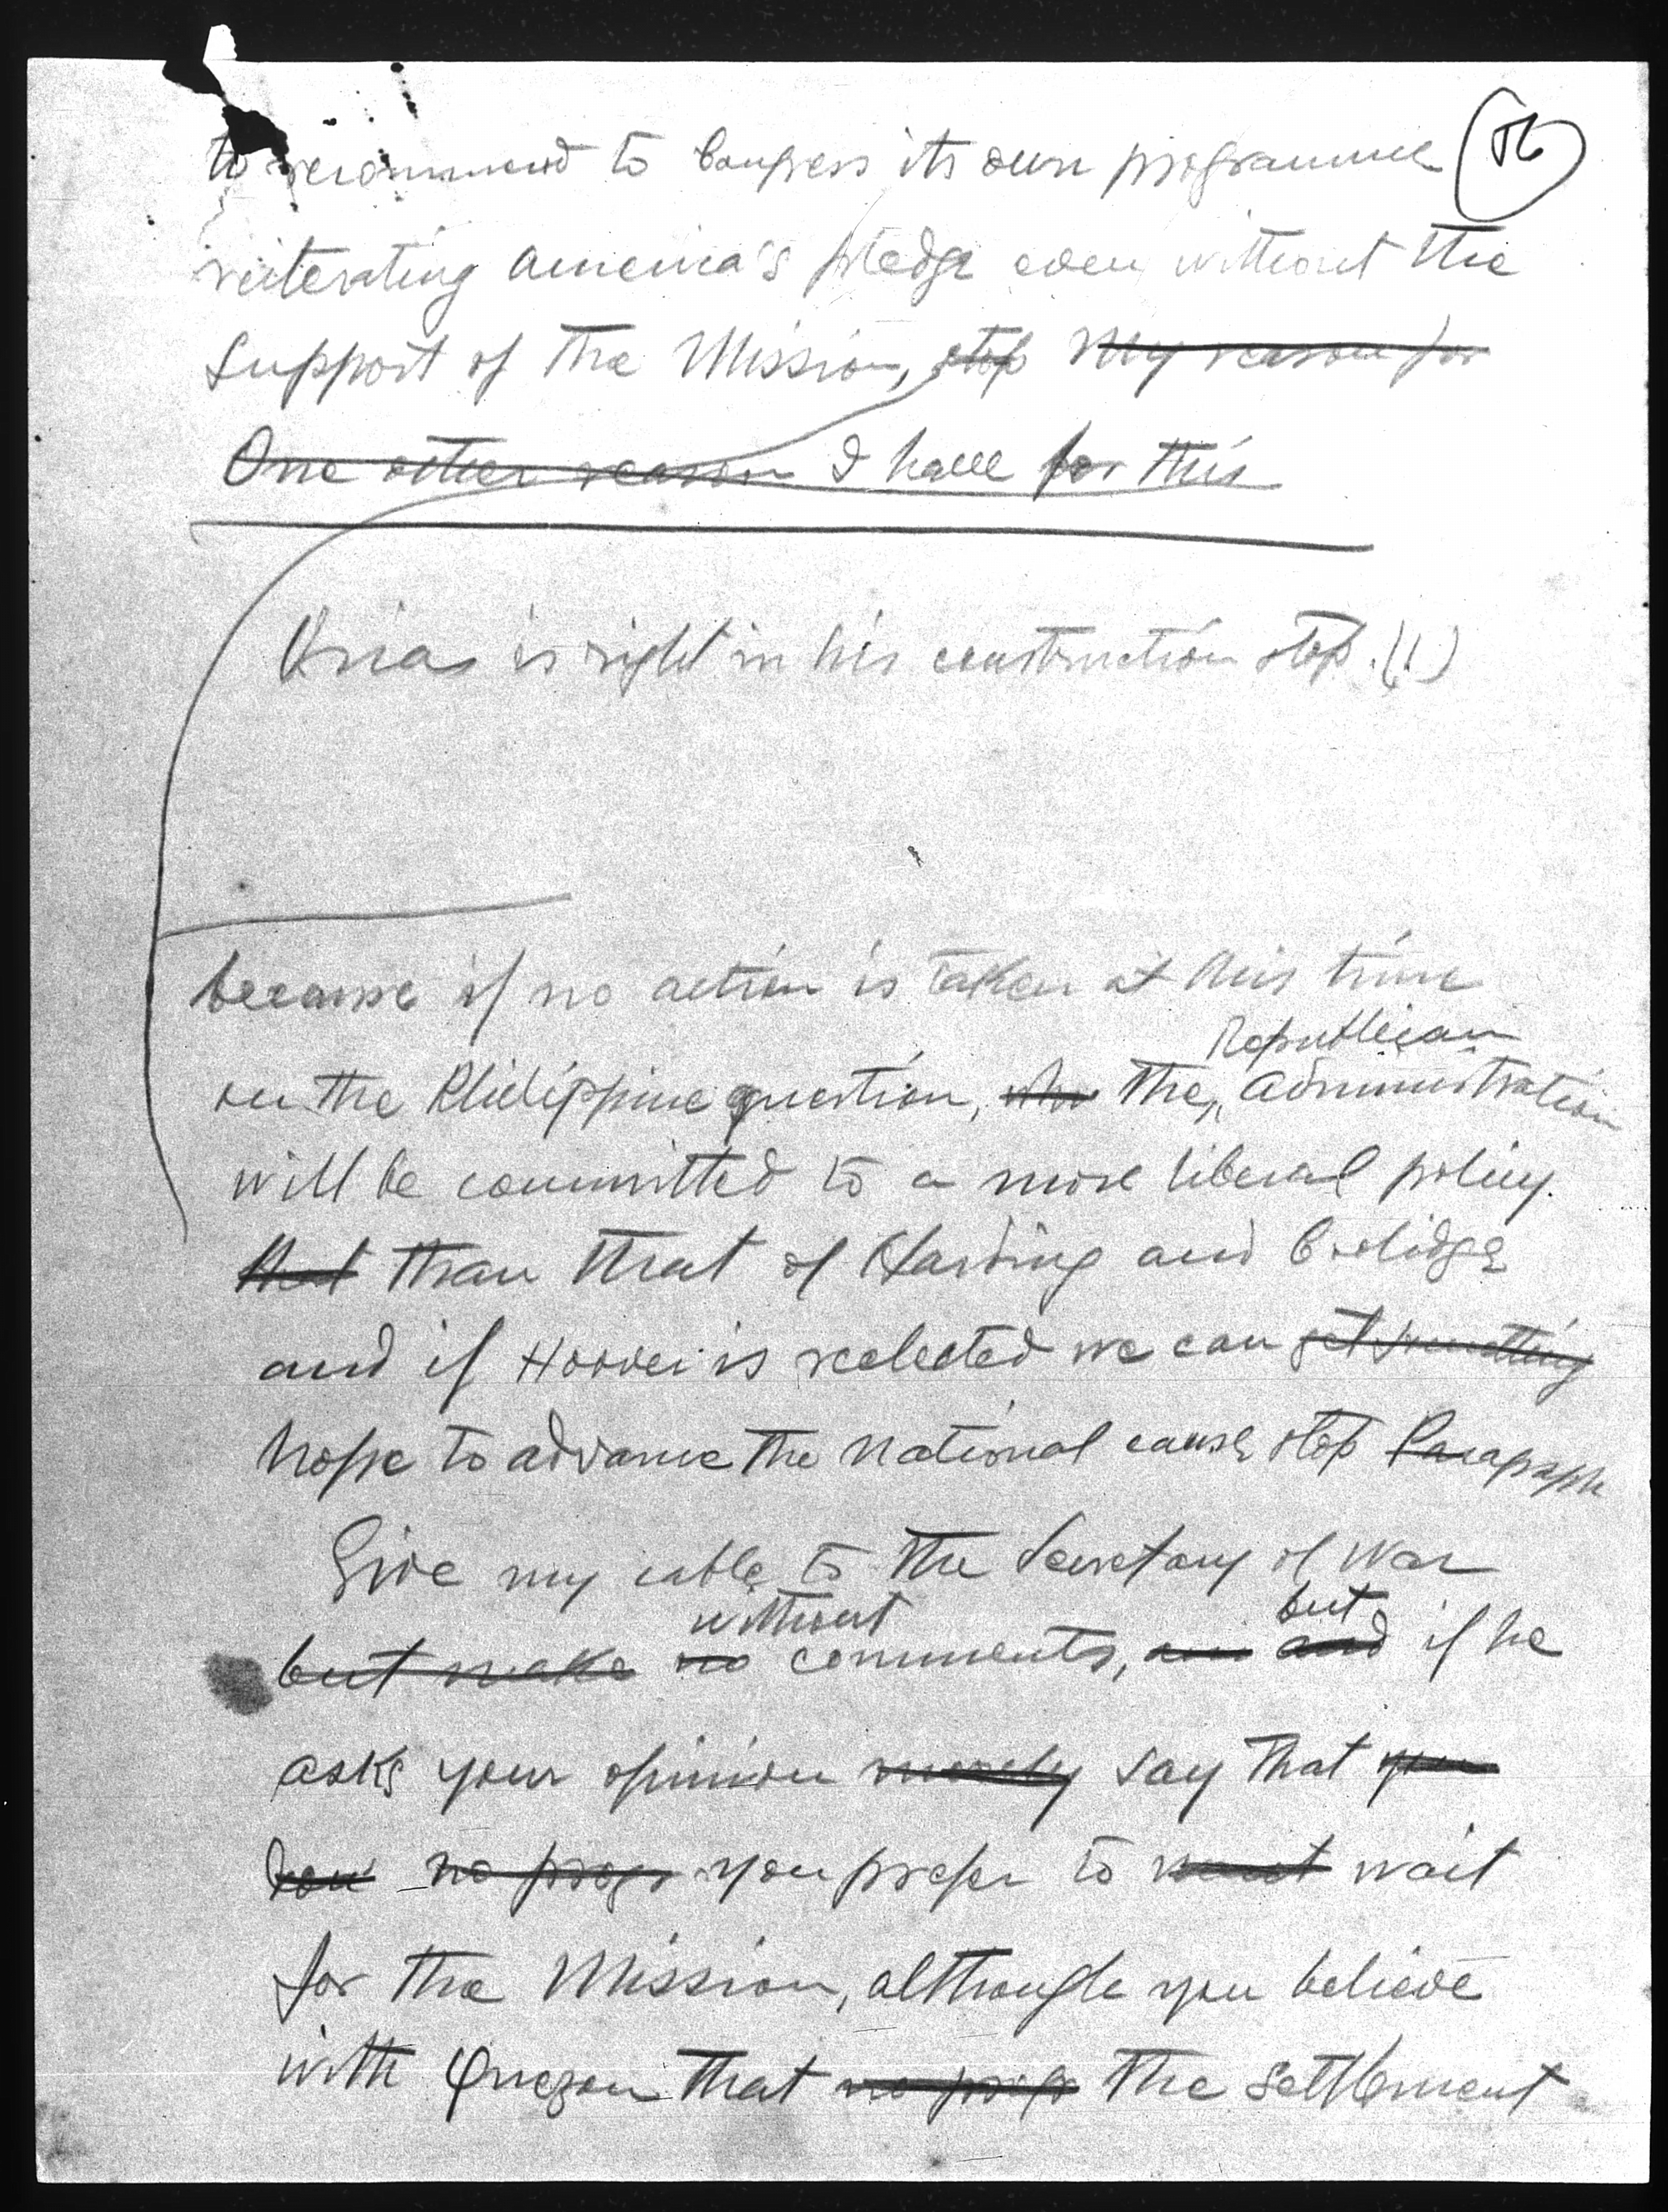 to recommend to Congress its own programme (56)
reiterating America's pledge even without the
support of the Mission, stop My reason for
One other reason I have for this
Osias is right in his construction stop. (1)
because if no action is taken at this time
on the Philippine question, the Republican administration
will be committed to a more liberal policy.
that than that of Harding and Coolidge
and if Hoover is reelected we can get something
hope to advance the national cause stop Paragraph
Give my cable to the Secretary of War
without but
but make no comments, and if he
asks your opinion merely say that you
no progr you prefer to want wait
for the Mission, although you believe
with Quezon that the settlement